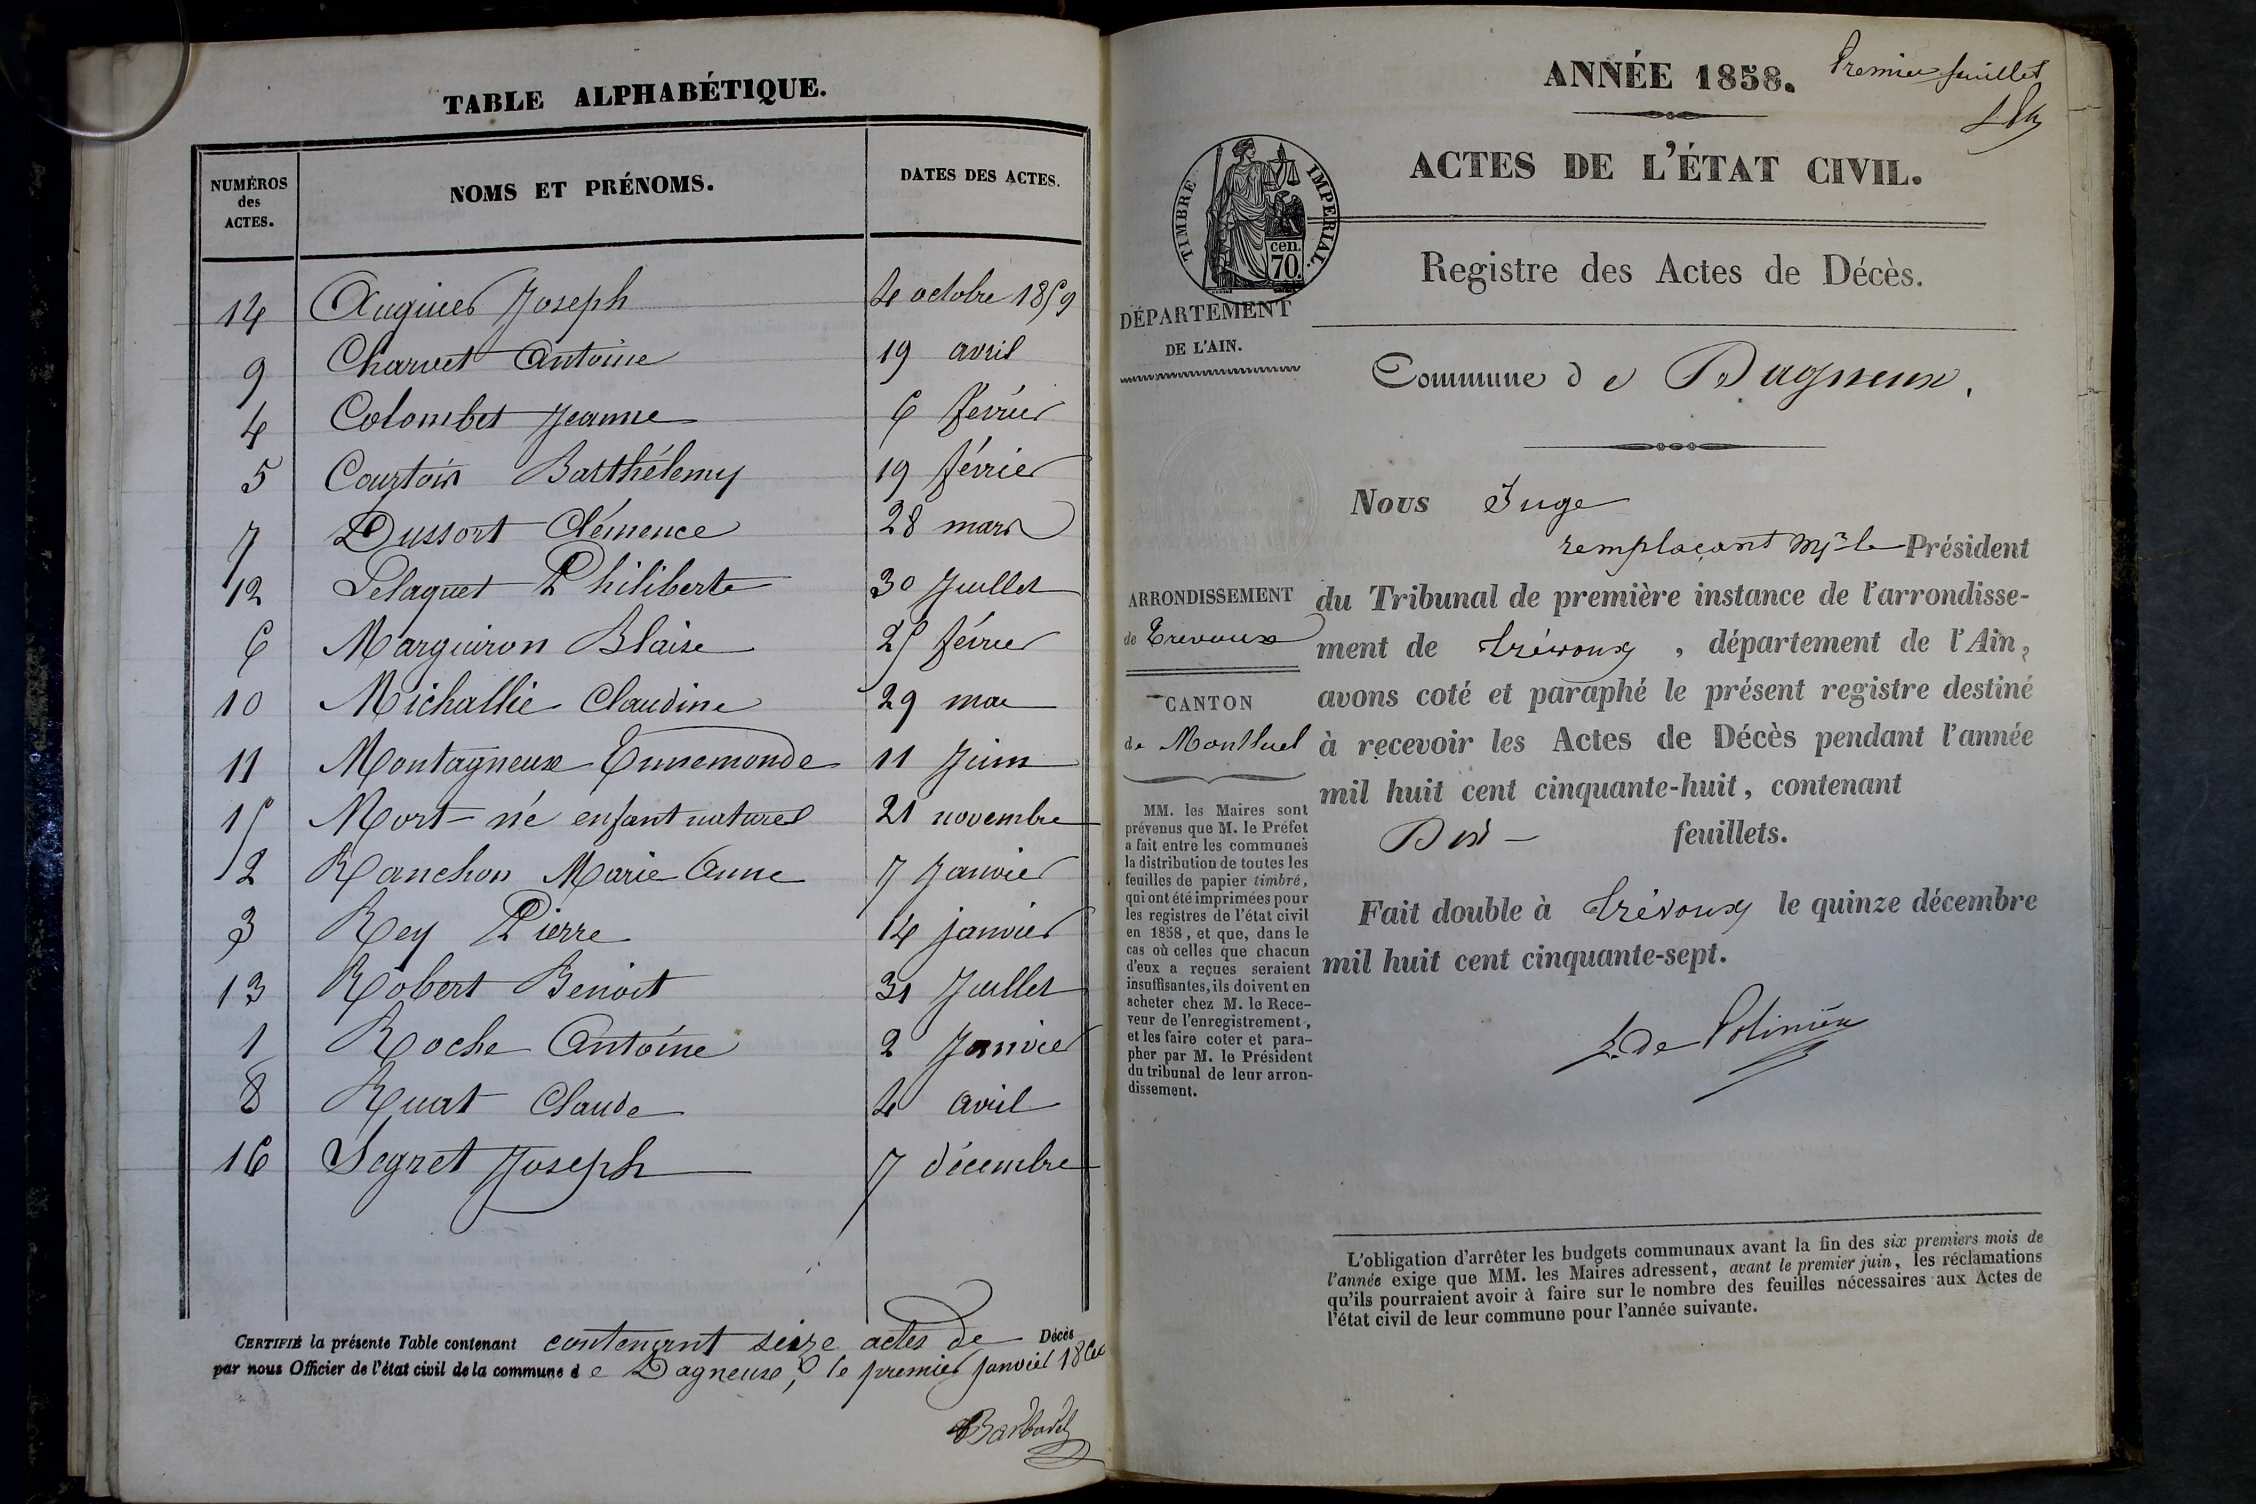 TABLE ALPHABÉTIQUE.
NUMÉROS des ACTES. NOMS ET PRÉNOMS. DATES DES ACTES.
14 Joseph 4 octobre 1859
9 Charvet Antoine 19 avril
4 Colombet Jeanne 6 février
5 Courtois Barthélemy 19 février
7 Dussort Clémence 28 mars
12 Pelaquet Philiberte 30 Juillet
6 Marguiron Blaise 25 février
10 Michallie Claudine 29 mai
11 Montagneux Ennemonde 11 Juin
15 Mort-né enfant naturel 21 novembre
2 Ranchon Marie Anne 7 Janvier
3 Rey Pierre 14 janvier
13 Robert Benoit 31 Juillet
1 Roche Antoine 2 Janvier
8 Ruat Claude 4 avril
16 Segret Joseph 7 décembre
CERTIFIÉ la présente Table contenant contenant seize actes de Décès
par nous Officier de l'état civil de la commune de Dagneux, le premier Janvier
ANNÉE 1858.
Premier feuillet
ACTES DE L'ÉTAT CIVIL.
TIMBRE IMPERIAL.
cen.
70.
Registre des Actes de Décès.
DÉPARTEMENT
DE L'AIN.
Commune de Dagneux.
Nous Juge
remplaçant Mr le Président
du Tribunal de première instance de l'arrondisse-
ment de Trévoux, département de l'Ain,
avons coté et paraphé le présent registre destiné
à recevoir les Actes de Décès pendant l'année
mil huit cent cinquante-huit, contenant
Dix feuillets.
Fait double à Trévoux le quinze décembre
mil huit cent cinquante-sept.
L. de Polinière
ARRONDISSEMENT
de Trevoux
CANTON
de Montluel
MM. les Maires sont
prévenus que M. le Préfet
a fait entre les communes
la distribution de toutes les
feuilles de papier timbré,
qui ont été imprimées pour
les registres de l'état civil
en 1858, et que, dans le
cas où celles que chacun
d'eux a reçues seraient
insuffisantes, ils doivent en
acheter chez M. le Rece-
veur de l'enregistrement,
et les faire coter et para-
pher par M. le Président
du tribunal de leur arron-
dissement.
L'obligation d'arrêter les budgets communaux avant la fin des six premiers mois de
l'année exige que MM. les Maires adressent, avant le premier juin, les réclamations
qu'ils pourraient avoir à faire sur le nombre des feuilles nécessaires aux Actes de
l'état civil de leur commune pour l'année suivante.